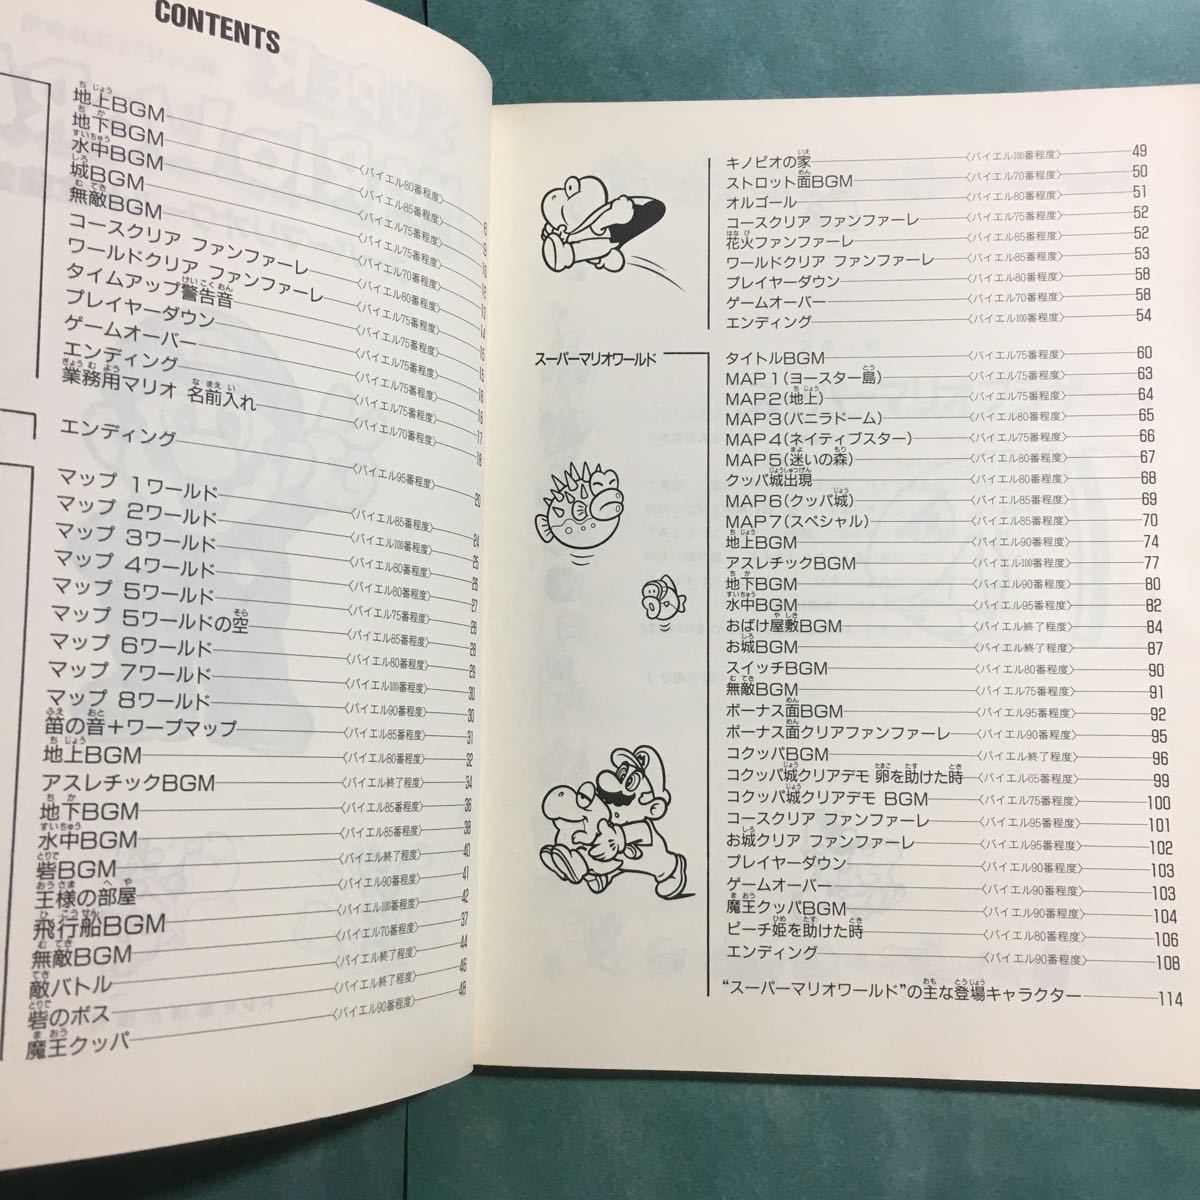 CONTENTS
地上BGM 〈バイエル80番程度〉 8
地下BGM 〈バイエル85番程度〉 9
水中BGM 〈バイエル75番程度〉 10
城BGM 〈バイエル75番程度〉 12
無敵BGM 〈バイエル70番程度〉 13
コースクリア ファンファーレ 〈バイエル80番程度〉 14
ワールドクリア ファンファーレ 〈バイエル75番程度〉 15
タイムアップ警告音 〈バイエル75番程度〉 15
プレイヤーダウン 〈バイエル75番程度〉 16
ゲームオーバー 〈バイエル75番程度〉 16
エンディング 〈バイエル75番程度〉 17
業務用マリオ 名前入れ 〈バイエル70番程度〉 18
エンディング 〈バイエル95番程度〉 20
マップ 1ワールド 〈バイエル85番程度〉 24
マップ 2ワールド 〈バイエル100番程度〉 25
マップ 3ワールド 〈バイエル80番程度〉 26
マップ 4ワールド 〈バイエル80番程度〉 27
マップ 5ワールド 〈バイエル75番程度〉 28
マップ 5ワールドの空 〈バイエル85番程度〉 28
マップ 6ワールド 〈バイエル80番程度〉 29
マップ 7ワールド 〈バイエル100番程度〉 30
マップ 8ワールド 〈バイエル90番程度〉 30
笛の音+ワープマップ 〈バイエル85番程度〉 31
地上BGM 〈バイエル80番程度〉 32
アスレチックBGM 〈バイエル終了程度〉 34
地下BGM 〈バイエル85番程度〉 36
水中BGM 〈バイエル85番程度〉 38
砦BGM 〈バイエル終了程度〉 40
王様の部屋 〈バイエル90番程度〉 41
飛行船BGM 〈バイエル100番程度〉 42
無敵BGM 〈バイエル70番程度〉 37
敵バトル 〈バイエル終了程度〉 44
砦のボス 〈バイエル終了程度〉 46
魔王クッパ 〈バイエル90番程度〉 48
キノピオの家 〈バイエル100番程度〉 49
ストロット面BGM 〈バイエル70番程度〉 50
オルゴール 〈バイエル80番程度〉 51
コースクリア ファンファーレ 〈バイエル75番程度〉 52
花火ファンファーレ 〈バイエル85番程度〉 52
ワールドクリア ファンファーレ 〈バイエル85番程度〉 53
プレイヤーダウン 〈バイエル80番程度〉 58
ゲームオーバー 〈バイエル70番程度〉 58
エンディング 〈バイエル100番程度〉 54
スーパーマリオワールド
タイトルBGM 〈バイエル75番程度〉 60
MAP1(ヨースター島) 〈バイエル75番程度〉 63
MAP2(地上) 〈バイエル75番程度〉 64
MAP3(バニラドーム) 〈バイエル80番程度〉 65
MAP4(ネイティブスター) 〈バイエル75番程度〉 66
MAP5(迷いの森) 〈バイエル80番程度〉 67
クッパ城出現 〈バイエル80番程度〉 68
MAP6(クッパ城) 〈バイエル85番程度〉 69
MAP7(スペシャル) 〈バイエル85番程度〉 70
地上BGM 〈バイエル90番程度〉 74
アスレチックBGM 〈バイエル100番程度〉 77
地下BGM 〈バイエル90番程度〉 80
水中BGM 〈バイエル95番程度〉 82
おばけ屋敷BGM 〈バイエル終了程度〉 84
お城BGM 〈バイエル終了程度〉 87
スイッチBGM 〈バイエル80番程度〉 90
無敵BGM 〈バイエル75番程度〉 91
ボーナス面BGM 〈バイエル95番程度〉 92
ボーナス面クリアファンファーレ 〈バイエル90番程度〉 95
コクッパBGM 〈バイエル終了程度〉 96
コクッパ城クリアデモ 卵を助けた時 〈バイエル65番程度〉 99
コクッパ城クリアデモ BGM 〈バイエル75番程度〉 100
コースクリア ファンファーレ 〈バイエル95番程度〉 101
お城クリア ファンファーレ 〈バイエル95番程度〉 102
プレイヤーダウン 〈バイエル90番程度〉 103
ゲームオーバー 〈バイエル90番程度〉 103
魔王クッパBGM 〈バイエル90番程度〉 104
ピーチ姫を助けた時 〈バイエル80番程度〉 106
エンディング 〈バイエル90番程度〉 108
“スーパーマリオワールド”の主な登場キャラクター 114